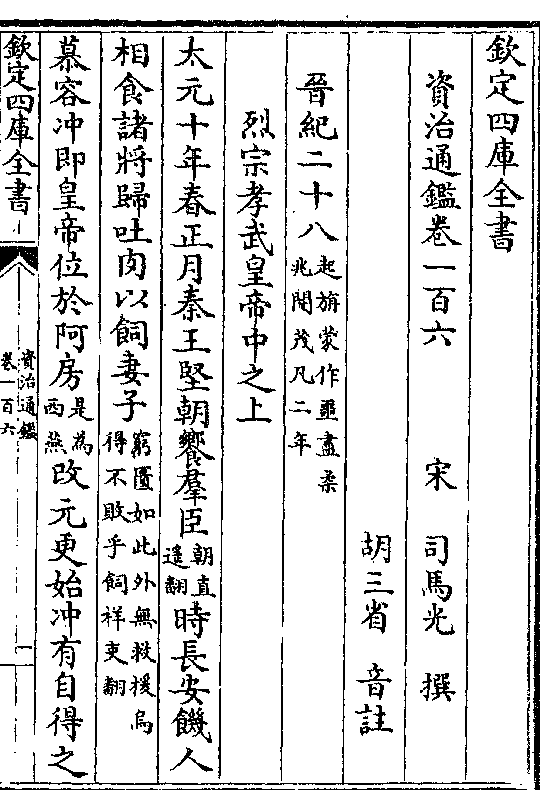 欽定四庫全書
資治通鑑卷一百六
宋 司馬光 撰
胡三省 音註
晉紀二十八起旃蒙作噩盡柔兆閹茂凡二年
烈宗孝武皇帝中之上
太元十年春正月秦王堅朝饗羣臣朝直遥翻時長安饑人
相食諸將歸吐肉以飼妻子窮匱如此外無救援烏得不敗乎飼祥吏翻
慕容沖即皇帝位於阿房是為西燕改元更始沖有自得之
欽定四庫全書
資治通鑑
卷一百六
一